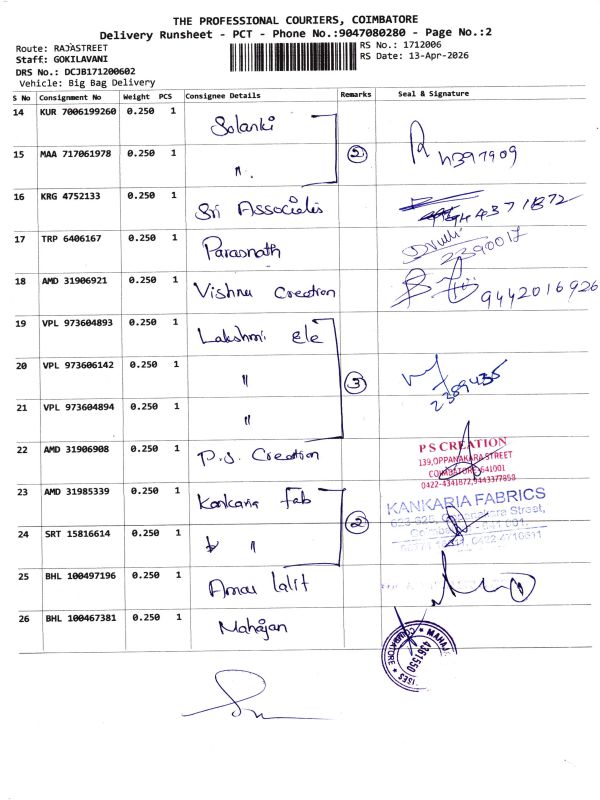 THE PROFESSIONAL COURIERS, COIMBATORE
Delivery Runsheet - PCT - Phone No.:9047080280 - Page No.:2
Route: RAJASTREET
Staff: GOKILAVANI
DRS No.: DCJB171200602
Vehicle: Big Bag Delivery
RS No.: 1712006
RS Date: 13-Apr-2026
S No Consignment No Weight PCS Consignee Details Remarks Seal & Signature
14 KUR 7006199260 0.250 1 Solanki
15 MAA 717061978 0.250 1 " 2 h397909
16 KRG 4752133 0.250 1 Sri Associetis 4371872
17 TRP 6406167 0.250 1 Parasnath 2390017
18 AMD 31906921 0.250 1 Vishnu Creation 9442016926
19 VPL 973604893 0.250 1 Lakshmi ele
20 VPL 973606142 0.250 1 " 3 2389435
21 VPL 973604894 0.250 1 "
22 AMD 31906908 0.250 1 P.S. Creation
P S CREATION
139,OPPANAKARA STREET
COIMBATORE-641001
0422-4341872,9443377858
23 AMD 31985339 0.250 1 Kankaria Fab
24 SRT 15816614 0.250 1 " 2
KANKARIA FABRICS
Oppanakara Street,
25 BHL 100497196 0.250 1 Amar Lalit
26 BHL 100467381 0.250 1 Mahajan
COIMBATORE * MAHAJ
4361550